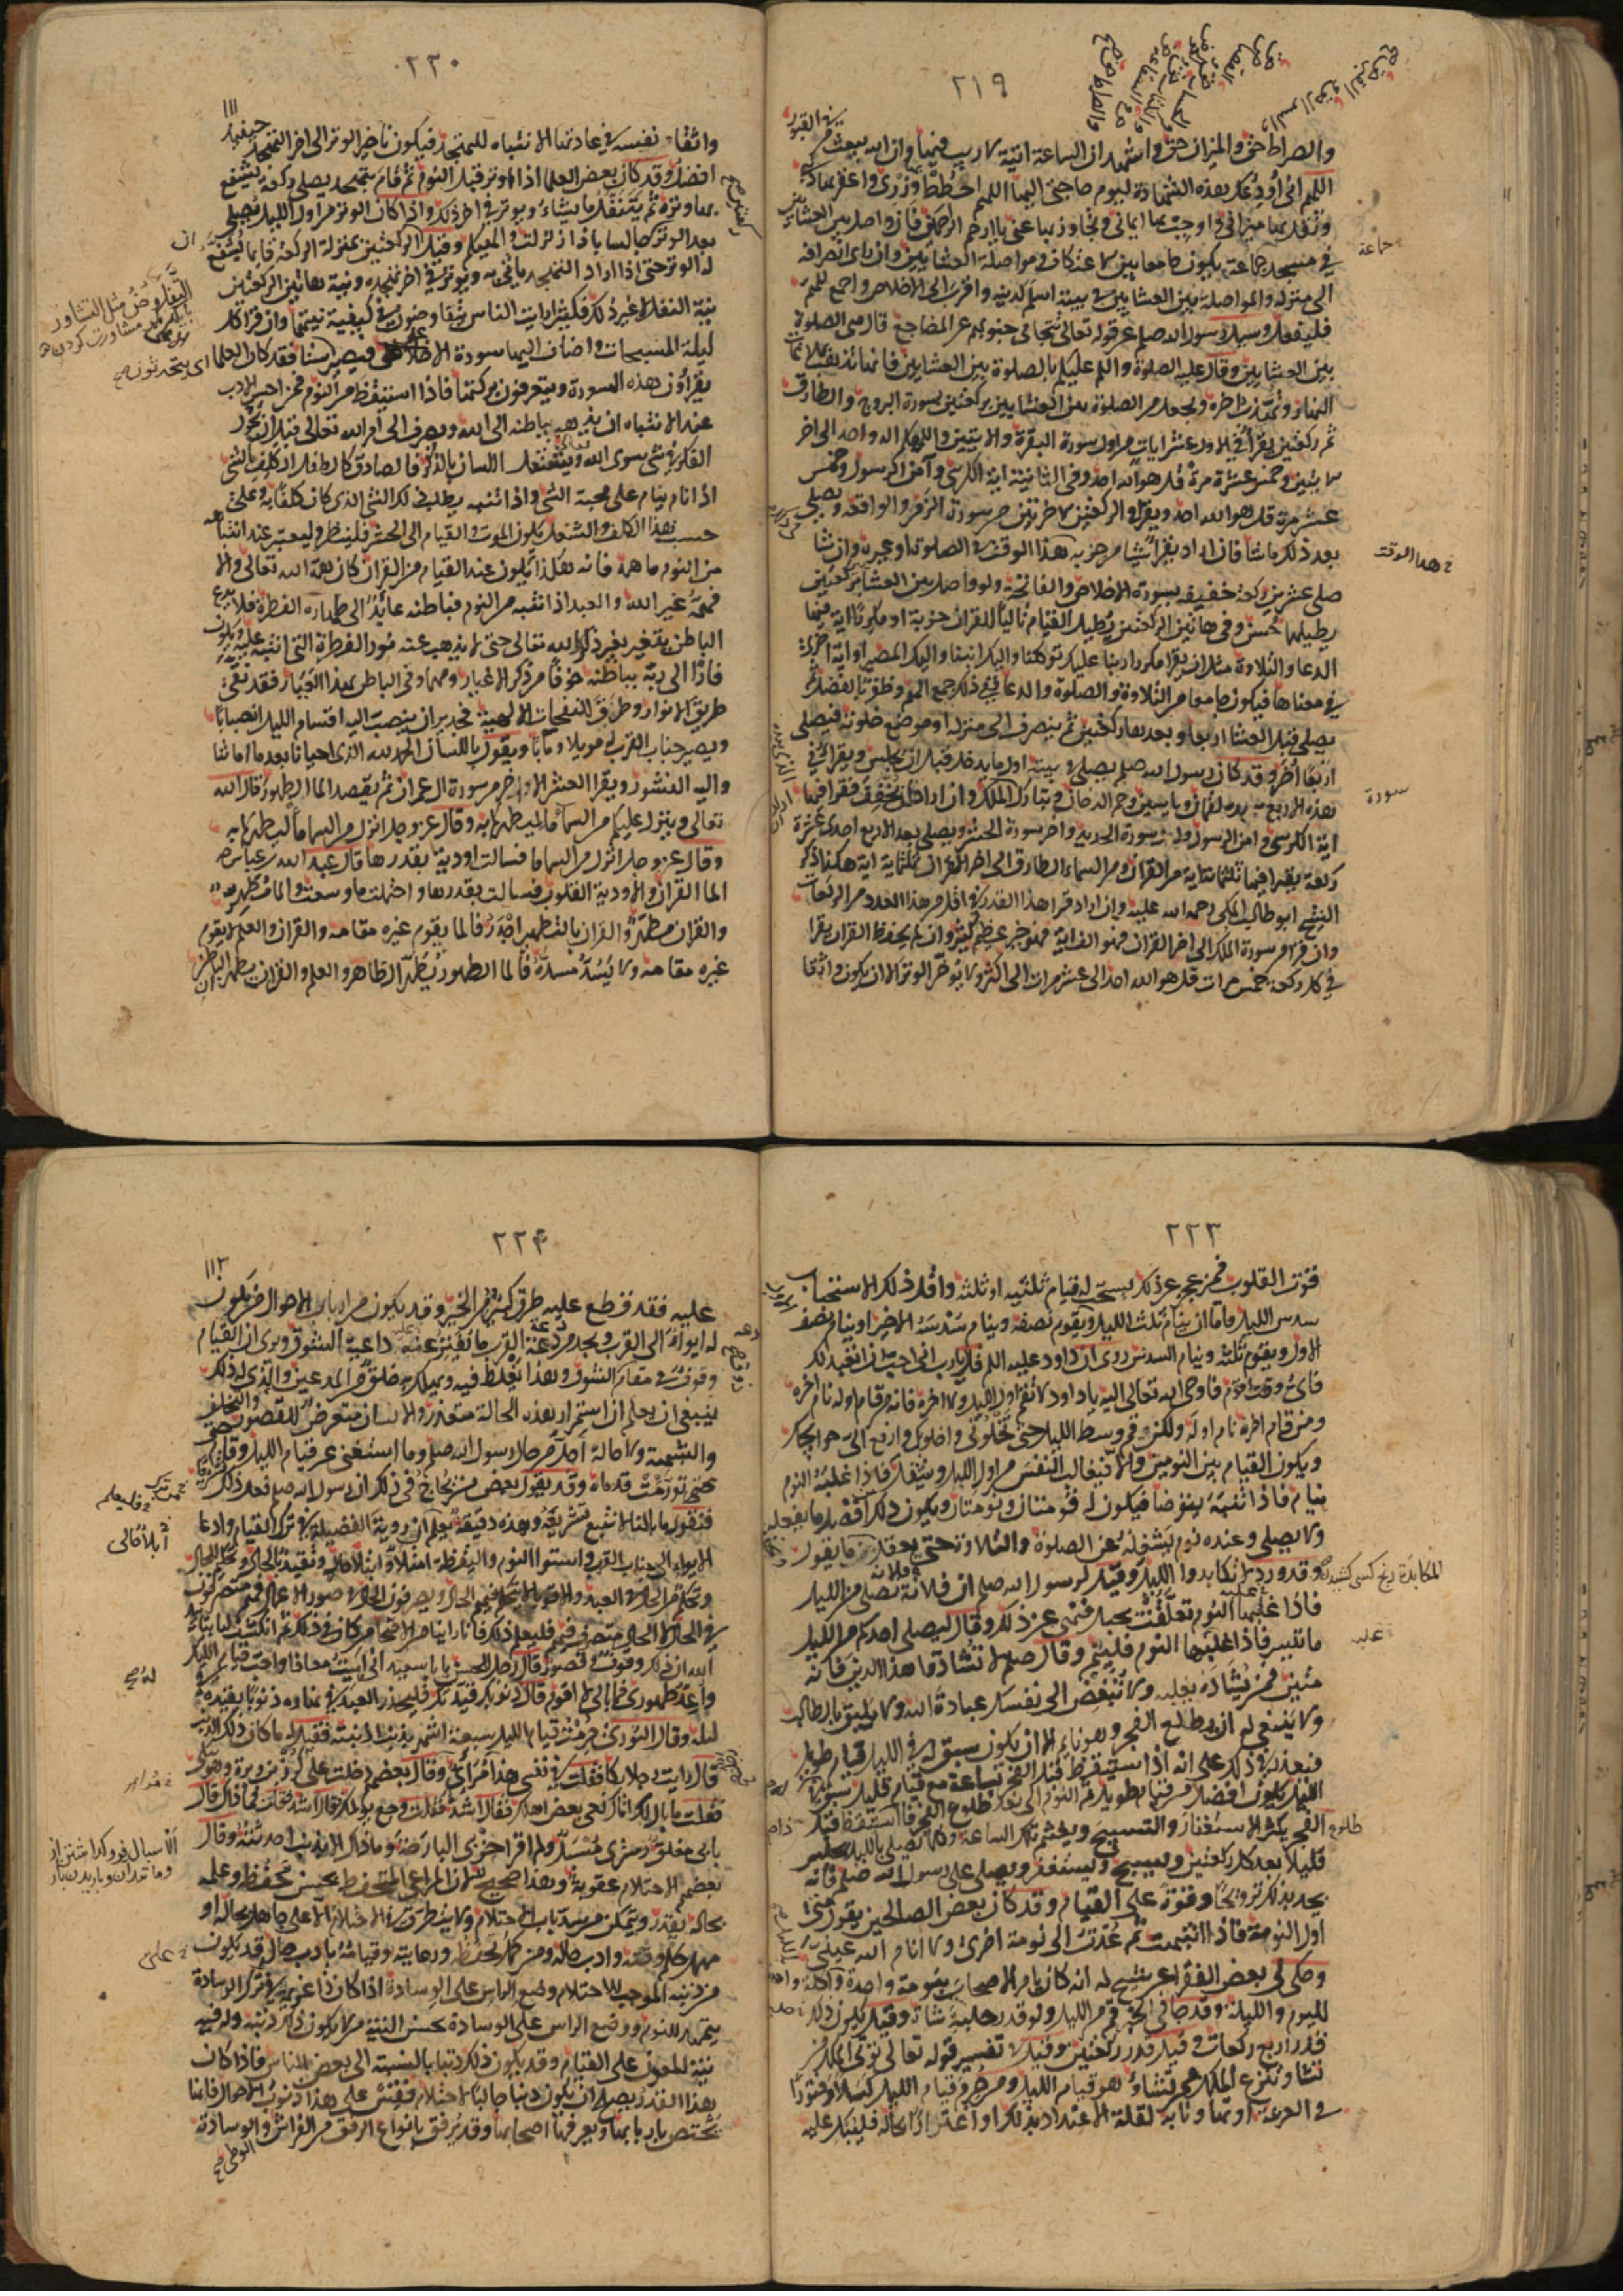 ٢١٩
والصراط حق والميزان حق واشهد ان الساعة اتية لا ريب فيها وان الله يبعث من في القبور
اللهم اني اودعك هذه الشهادة ليوم حاجتي اليها اللهم احطط بها وزري واغفر بها ذنبي
وثقل بها ميزاني واوجب لي بها اماني وتجاوز بها عني يا ارحم الراحمين فان واصل بين العشائين
في مسجد جماعة يكون جامعا بين الاعتكاف ومواصلة العشايين وان راى انصرافه
الى منزله والمواصلة بين العشايين في بيته اسلم لدينه واقرب الى الاخلاص واجمع للهم
فليفعل وسيل رسول الله صلعم عن قوله تعالى تتجافى جنوبهم عن المضاجع قال هي الصلوة
بين العشايين وقال عليه الصلوة والسلم عليكم بالصلوة بين العشايين فانها تذهب بملاغات
النهار وتهذب اخره ويجعل من الصلوة بين العشايين ركعتين بسورة البروج والطارق
ثم ركعتين يقرأ في الاولى عشر ايات من اول سورة البقرة والايتين والهكم اله واحد الى اخر
الايتين وخمس عشرة مرة قل هو الله احد وفي الثانية اية الكرسي وآمن الرسول وخمس
عشر مرة قل هو الله احد ويقرأ في الركعتين الاخرتين من سورة الزمر والواقعة ويصلي
بعد ذلك ما شا فان اراد يقرأ شيا من حزبه في هذا الوقت في الصلوة او غيره وان شا
صلى عشرين ركعة خفيفة بسورة الاخلاص والفاتحة ولو واصل بين العشائين بركعتين
يطيلهما فحسن وفي هاتين الركعتين يطيل القيام تاليا للقران حزبه او مكررا اية فيها
الدعا والتلاوة مثل ان يقرا مكررا ربنا عليك توكلنا واليك انبنا واليك المصير او اية اخرى
في معناها فيكون جامعا من التلاوة والصلوة والدعا ففي ذلك جمع للهم وظفر بالفضل ثم
يصلي قبل العشا اربعا وبعدها ركعتين ثم ينصرف الى منزله او موضع خلوته فيصلي
اربعا اخر وقد كان رسول الله صلعم يصلي في بيته اول ما يدخل قبل ان يجلس ويقرأ في
هذه الاربع سورة لقمان ويس وحم الدخان وتبارك الملك وان اراد ان يخفف فيقرا فيها
اية الكرسي وامن الرسول واول سورة الحديد واخر سورة الحشر ويصلي بعد الاربع احدى عشرة
ركعة يقرا فيها ثلثماية اية من القران من والسماء والطارق الى اخر القران ثلثماية اية هكذا ذكر
الشيخ ابو طالب المكي رحمه الله عليه وان اراد قرا هذا القدر في اقل من هذا العدد من الركعات
وان قرا من سورة الملك الى اخر القران فهو الف اية فهو خير عظيم كثير وان لم يحفظ القران يقرا
في كل ركعة خمس مرات قل هو الله احد الى عشر مرات الى اكثر ولا يؤخر الوتر الا ان يكون واثقا
جماعة
هذا الوقت
سورة
٢٢٠
١١١
واثقا من نفسه في عادتها الانتباه للتهجد فيكون تاخير الوتر الى اخر التهجد حينئذ
افضل وقد كان بعض العلما اذا اوتر قبل النوم ثم قام يتهجد يصلي ركعة يشفع
بها وتره ثم يتنفل ما يشاء ويوتر في اخر ذلك واذا كان الوتر من اول الليل فيصلي
بعد الوتر ركعتين جالسا باذا زلزلت والهيكم وقيل الركعتين بمنزلة الركعة قايما يشفع
له الوتر حتى اذا اراد التهجد يأتي به ويوتر في اخر تهجده ونية هاتين الركعتين
نية النفل لا غير ذلك فكثيرا رايت الناس يتفاوضون في كيفية نيتهما وان قرا كل
ليلة المسبحات واضاف اليها سورة الاعلى فيصير ستا فقد كان العلما
يقرأون هذه السورة ويتعرفون بركتها فاذا استيقظ من النوم فمن احسن الادب
عند الانتباه ان يذهب بباطنه الى الله ويصرف الى امر الله تعالى قبل ان يجول
الفكر في شي سوى الله ويشتغل اللسان بالذكر فالصادق كالطفل الكلف بالشي
اذا نام ينام على محبة الشي واذا انتبه يطلب ذلك الشي الذي كان كلفا به وعلى
حسب هذا الكلف والشغل يكون الموت والقيام الى الحشر فلينظر وليعتبر عند انتباهه
من النوم ما همه فانه هكذا يكون عند القيام من القبر ان كان همه الله تعالى والا
فهمه غير الله والعبد اذا انتبه من النوم فباطنه عائد الى طهارة الفطرة فلا يدع
الباطن يتغير بغير ذكر الله تعالى حتى لا يذهب عنه نور الفطرة التي انتبه عليه ويكون
فارا الى ربه بباطنه خوفا من ذكر الاغيار ومهما وفى الباطن بهذا العيار فقد نقي
طريق الانوار وطرق النفحات الالهية فجدير ان ينصب اليه اقسام الليل انصبابا
ويصير جناب القرب له موئلا ومآبا ويقول باللسان الحمد لله الذي احيانا بعد ما اماتنا
واليه النشور ويقرا العشر الاواخر من سورة ال عمران ثم يقصد الما الطهور قال الله
تعالى وينزل عليكم من السماء ما ليطهركم به وقال عز وجل انزل من السما ما ليطهركم به
وقال عز وجل انزل من السما ما فسالت اودية بقدرها قال عبد الله بن عباس رضه
الما القران والاودية القلوب فسالت بقدرها واحتملت ما وسعت والما مطهر
والقران مطهر والقران بالتطهير اجدر فالما يقوم غيره مقامه والقران والعلم لا يقوم
غيره مقامه ولا يسد مسده فالما الطهور يطهر الظاهر والعلم والقران يطهر الباطن
التفاوض مثل التشاور
اي يتحدثون
٢٢٣
قوت القلوب فمن عجز عن ذلك يستحب له قيام ثلثيه او ثلثه واقل ذلك الاستحباب
سدس الليل فاما ان ينام ثلث الليل ويقوم نصفه وينام سدسه الاخير او ينام نصف
الاول ويقوم ثلثه وينام السدس روى ان داود عليه السلم قال يا رب اني احب ان اتعبد لك
فاي وقت اقوم فاوحى الله تعالى اليه يا داود لا تقم اول الليل ولا اخره فانه من قام اوله نام اخره
ومن قام اخره نام اوله ولكن قم وسط الليل حتى تخلو بي واخلو بك وارفع الي حوايجك
ويكون القيام بين النومين والا فيغالب النفس من اول الليل ويتنفل فاذا غلبه النوم
ينام فاذا انتبه يتوضا فيكون له قومتان ونومتان ويكون ذلك افضل ما يفعله
ولا يصلي وعنده نوم يشغله عن الصلوة والتلاوة حتى يعقل ما يقول
وقد ورد لا تكابدوا الليل وقيل لرسول الله صلعم ان فلانة تصلي من الليل
فاذا غلبها النوم تعلقت بحبل فنهى عن ذلك وقال ليصلي احدكم من الليل
ما تيسر فاذا غلبه النوم فلينم وقال صلعم لا تشادوا هذا الدين فانه
متين فمن يشاده يغلبه ولا تبغض الى نفسك عبادة الله ولا يليق بالطالب
ولا ينبغي له ان يطلع الفجر وهو نايم الا ان يكون سبق له في الليل قيام طويل
فيعذر في ذلك على انه اذا استيقظ قبل الفجر بساعة مع قيام قليل سبق في
الليل يكون افضل من قيام طويل ثم النوم الى بعد طلوع الفجر فاذا استيقظ قبل
الفجر يكثر الاستغفار والتسبيح ويغتنم تلك الساعة وكلما يصلي بالليل يجلس
قليلا بعد كل ركعتين ويسبح ويستغفر ويصلي على رسول الله صلعم فانه
يجد بذلك ترويحا وقوة على القيام وقد كان بعض الصالحين يقول هي
اول النومة فاذا انتبهت ثم عدت الى نومة اخرى ولا انام الله عيني
وحكى لي بعض الفقرا عن شيخ له انه كان يامر الاصحاب بنومة واحدة واكلة واحدة
لليوم والليلة وقد جا في الخبر قم من الليل ولو قدر حلبة شاة وقيل يكون ذلك
قدر اربع ركعات وقيل قدر ركعتين وقيل في تفسير قوله تعالى توتي الملك من
تشا وتنزع الملك ممن تشاء هو قيام الليل ومن حرم قيام الليل كسلا وفتورا
في العزيمة او تهاونا به لقلة الاعتداد بذلك او اغترارا بحاله فليبك عليه
المكابدة رنج كسى كشيدن
طلوع
٢٢٤
١١٣
عليه فقد قطع عليه طريق كثير من الخير وقد يكون من ارباب الاحوال من يكون
له ايواء الى القرب ويجد من دعة القرب ما يفتر عنه داعية الشوق ويرى ان القيام
وقوف في مقام الشوق وهذا يغلط فيه ويهلك به خلق من المدعين والذي له ذلك
ينبغي ان يعلم ان استمرار هذه الحالة متعذر والانسان متعرض للقصور والتخلف
والشبهة ولا حالة اجل من حال رسول الله صلعم وما استغنى عن قيام الليل وقام حتى
تورمت قدماه وقد يقول بعض من يحاج في ذلك ان رسول الله صلعم فعل ذلك تشريعا
فنقول ما بالنا لا نتبع تشريعه وهذه دقيقة يعلم ان روية الفضيلة في ترك القيام وادعا
الايواء الى جناب القرب واستوا النوم واليقظة امتلا وابتلا حالي وتقيد بالحال وتحكيم للحال
وتحكم من الحال في العبد والاقويا لا يتحكم فيهم الحال ويصرفون الحال في صور الاعمال فهم متصرفون
في الحال لا الحال متصرف فيهم فليعلم ذلك فانا راينا من الاصحاب من كان في ذلك ثم انكشف لنا بتاييد
الله ان ذلك وقوف وقصور قال رجل للحسن يا با سعيد اني ابيت معافا واحب قيام الليل
واعد طهوري فما بالي لا اقوم قال ذنوبك قيدتك فليحذر العبد في نهاره ذنوبا تقيده في
ليله وقال الثوري حرمت قيام الليل سبعة اشهر بذنب اذنبته فقيل له ما كان ذلك الذنب
قال رايت رجلا بكا فقلت في نفسي هذا مرائي وقال بعضهم دخلت على كرز بن وبرة وهو يبكي
فقلت ما بالك اتاك نعي بعض اهلك فقال اشد فقلت وجع يولمك قال اشد فقلت فما ذاك قال
بابي مغلق وستري مسبل ولم اقرا حزبي البارحة وما ذاك الا بذنب احدثته وقال
بعضهم الاحتلام عقوبة وهذا صحيح لان المراعي المتحفظ بحسن تحفظه وعلمه
بحاله يقدر ويتمكن من سد باب الاحتلام ولا يتطرق الاحتلام الا على جاهل بحاله او
مهمل حكم وقته وادب حاله ومن كمل تحفظه ورعايته وقيامه بادب حاله قد يكون
من ذنبه الموجب للاحتلام وضع الراس على الوسادة اذا كان ذا عزيمة في ترك الوسادة
يتمهد للنوم ووضع الراس على الوسادة بحسن النية من لا يكون ذلك ذنبه وله فيه
نية للعون على القيام وقد يكون ذلك ذنبا بالنسبة الى بعض الناس فاذا كان
هذا القدر يصلح ان يكون ذنبا جالبا للاحتلام فقس على هذا ذنوب الاحوال فانها
تختص باربابها ويعرفها اصحابها وقد يرفق بانواع الرفق من الفراش والوسادة
الوطي